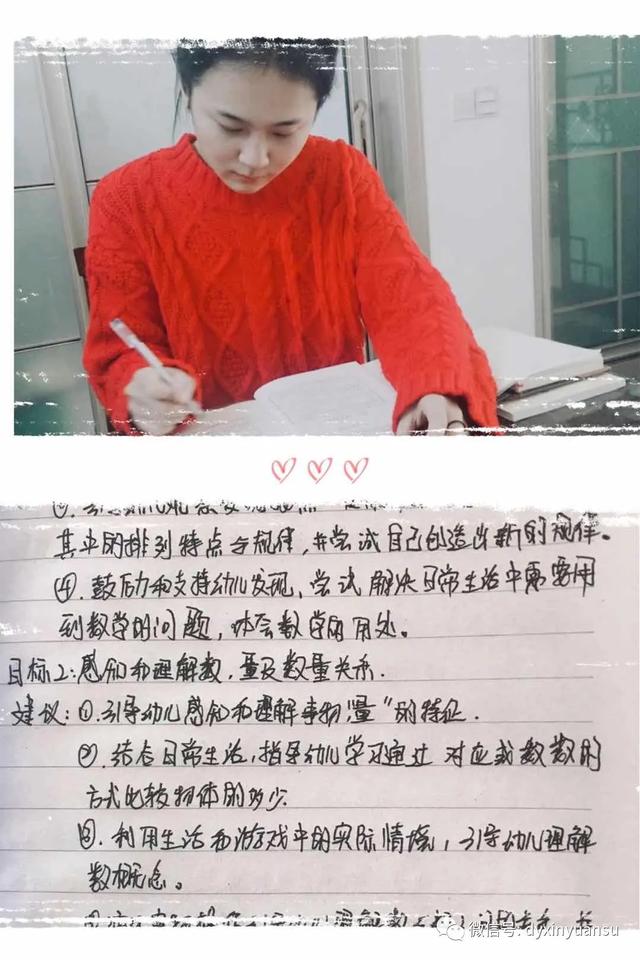 其中的排列特点与规律,并尝试自己创造出新的规律。
④.鼓励和支持幼儿发现、尝试解决日常生活中需要用
到数学的问题,体会数学的用处。
目标2:感知和理解数,量及数量关系.
建议:①.引导幼儿感知和理解事物"量"的特征.
②.结合日常生活,指导幼儿学习通过对应或数数的
方式比较物体的多少.
③.利用生活和游戏中的实际情境,引导幼儿理解
数概念。
微信号: dyxinyuansu